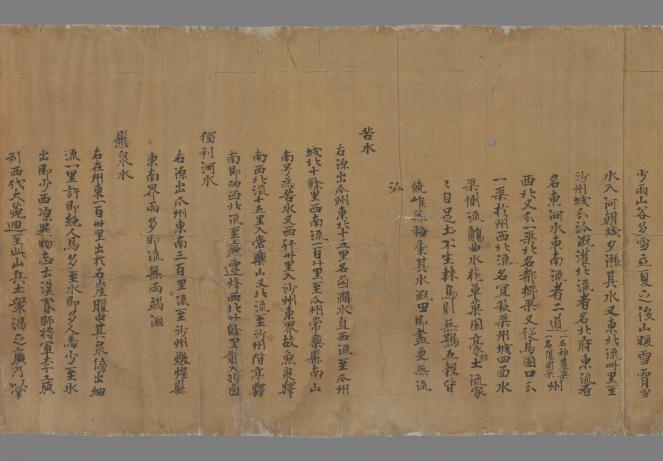 少雨山谷多雪立夏之後山暖雪霄雪
水入河朝減夕漲其水又東北流卌里至
沙州城分派溉灌北流者名北府東流者
名東河水東南流者二道一名神農渠一名陽開渠州
西北又分一渠北名都鄉渠又從馬圈口分
一渠於州西北流名宜秋渠州城四面水
渠側流觴曲水花草菓園豪族土流家
家自足土不生棘鳥則無鴞五穀皆
饒唯無稻黍其水溉田即盡更無流
派
苦水
右源出瓜州東北十五里名鹵澗水直西流至瓜州
城北十餘里西南流一百廿里至瓜州常樂縣南山
南号為苦水又西行卅里入沙州東界故魚泉驛
南西北流十五里入常樂山又北流至沙州階亭驛
南即向西北流至廣遷烽西北廿餘里散入沙鹵
獨利河水
右源出瓜州東南三百里流至沙州燉煌縣
東南界雨多即流無雨竭涸
懸泉水
右在州東一百卅里出於石崖腹中其泉傍出細
流一里許即絕人馬多至水即多人馬少至水
出即少西涼異物志云漢貳師將軍李廣
利西伐大宛迴至此山兵士衆渴乏廣乃